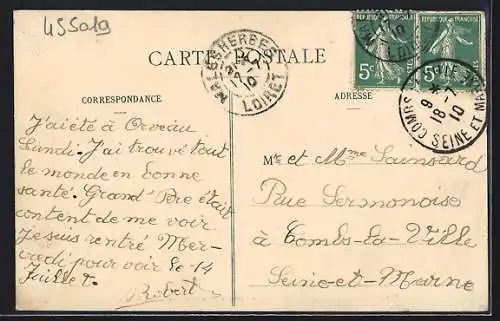 455019
CARTE POSTALE
MALESHERBES
LOIRET
RÉPUBLIQUE FRANÇAISE
5c
5c
COMBS
SEINE ET MARNE
9 *
18 - 7
10
CORRESPONDANCE
ADRESSE
J'ai été à Orveau
Lundi. J'ai trouvé tout
le monde en bonne
santé. Grand Père était
content de me voir
Je suis rentré Mer-
credi pour voir le 14
Juillet.
Robert
Mr et Mme Sainsard
Rue Sermonoise
à Combs-la-Ville
Seine-et-Marne